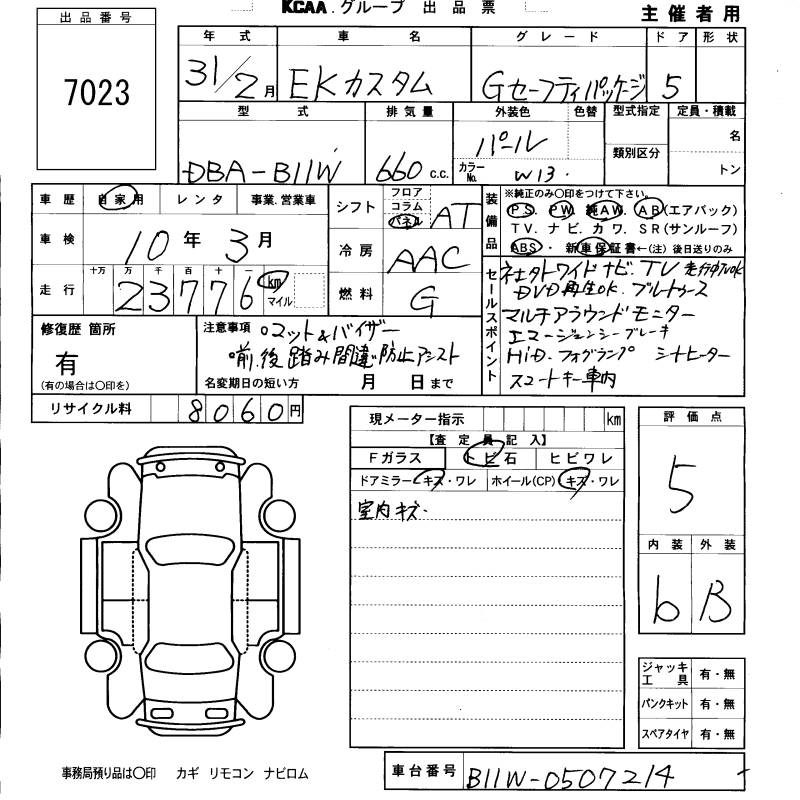 KCAA.グループ 出品票
主催者用
出品番号
7023
年式 車名 グレード ドア 形状
31/2月 EKカスタム Gセーフティパッケージ 5
型式 排気量 外装色 色替 型式指定 定員・積載
DBA-B11W 660 c.c. パール 名
カラーNo. W13. 類別区分 トン
車歴 自家用 レンタ 事業.営業車
車検 10年 3月
走行 十万 万 千 百 十 一
23776 km マイル
シフト フロア コラム パネル AT
冷房 AAC
燃料 G
装備品 ※純正のみ〇印をつけて下さい。
PS. PW. 純AW. AB(エアバック)
TV. ナビ. カワ. SR(サンルーフ)
ABS・ 新車保証書←(注) 後日送りのみ
セールスポイント
ネオタトワイドナビ.TV 走行中OK
DVD再生OK. ブルートゥース
マルチアラウンドモニター
エマージェンシーブレーキ
HiD.フォグランプ シートヒーター
スマートキー車内
修復歴 箇所
有
(有の場合は〇印を)
注意事項 ロマット&バイザー
前.後踏み間違い防止アシスト
名変期日の短い方 月 日まで
リサイクル料 8060円
現メーター指示 km
【査定員記入】
Fガラス トビ石 ヒビワレ
ドアミラー キズ・ワレ ホイール(CP) キズ・ワレ
室内キズ.
評価点
5
内装 外装
b B
ジャッキ工具 有・無
パンクキット 有・無
スペアタイヤ 有・無
事務局預り品は〇印 カギ リモコン ナビロム
車台番号 B11W-0507214